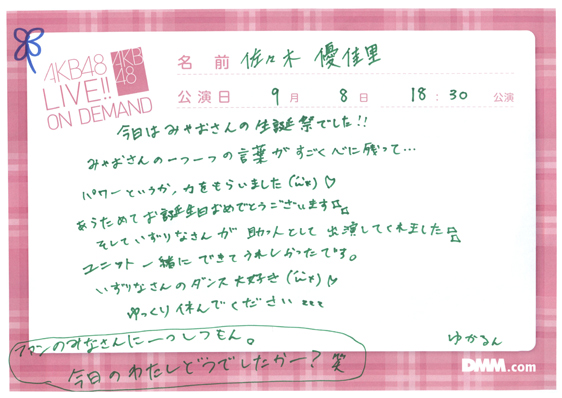 AKB48
LIVE!!
ON DEMAND
AKB
48
名前 佐々木 優佳里
公演日 9月 8日 18:30 公演
今日はみゃおさんの生誕祭でした!!
みゃおさんの一つ一つの言葉がすごく心に残って…
パワーというか、力をもらいました
あらためてお誕生日おめでとうございます
そしていずりなさんが 助っ人として 出演してくれました
ユニット一緒にできてうれしかったです。
いずりなさんのダンス大好き
ゆっくり休んでください zzz
ファンのみなさんに一つしつもん。
今日のわたしどうでしたかー?笑
ゆかるん
DMM.com